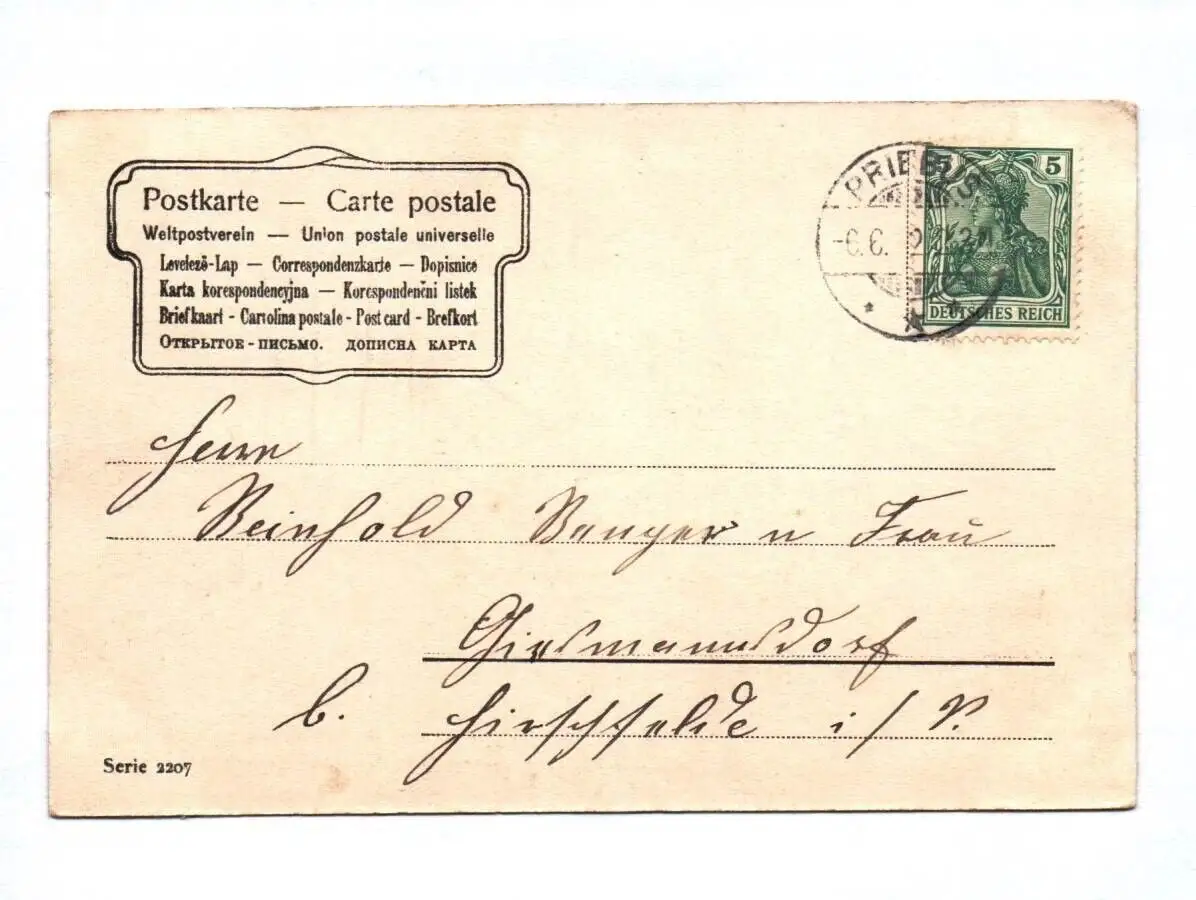 Postkarte — Carte postale
Weltpostverein — Union postale universelle
Levelezö-Lap — Correspondenzkarte — Dopisnice
Karta korespondencyjna — Korespondenčni listek
Briefkaart - Cartolina postale - Post card - Brefkort
Открытое - письмо. дописна карта
PRIEBUS
-6.6.
5 5
DEUTSCHES REICH
Herrn
Reinhold u Frau
b. Hirschfelde i/
Serie 2207